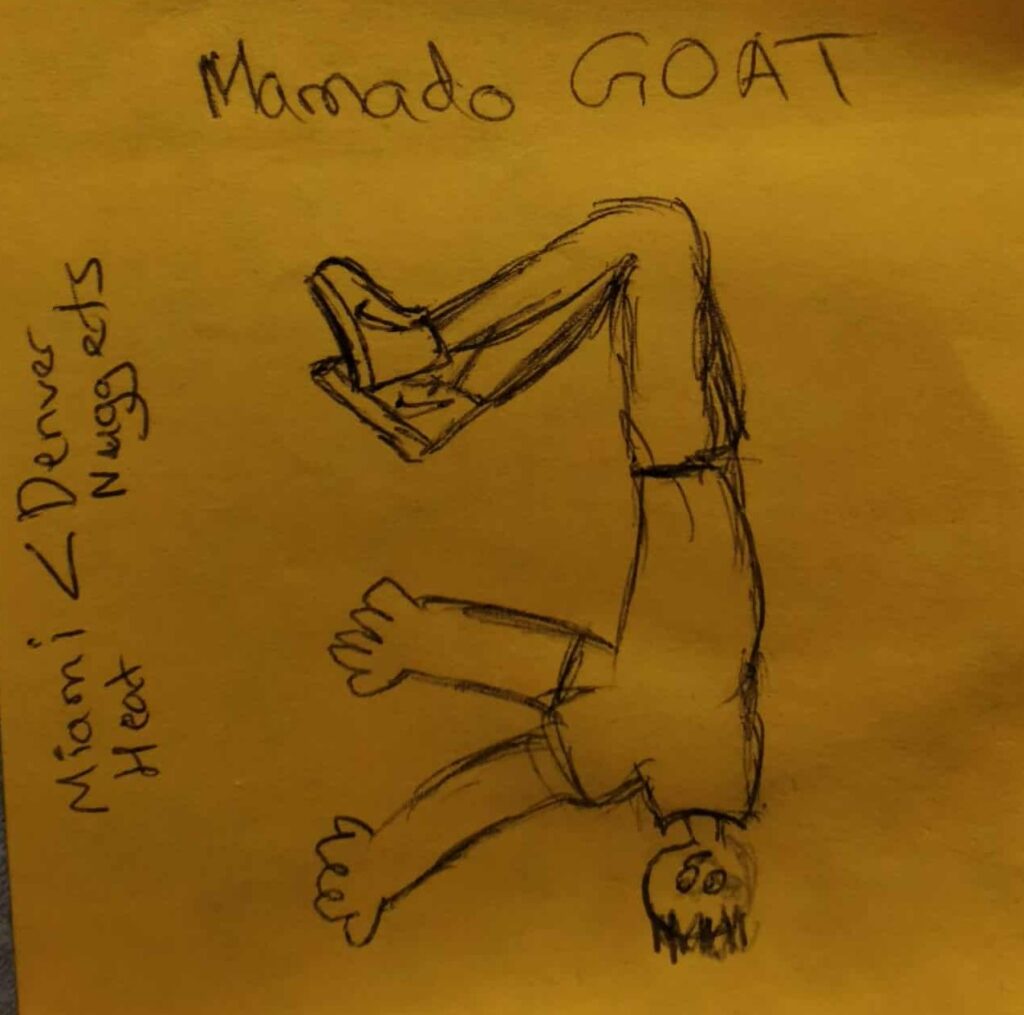 Mamado GOAT
Miami < Denver
Heat Nuggects